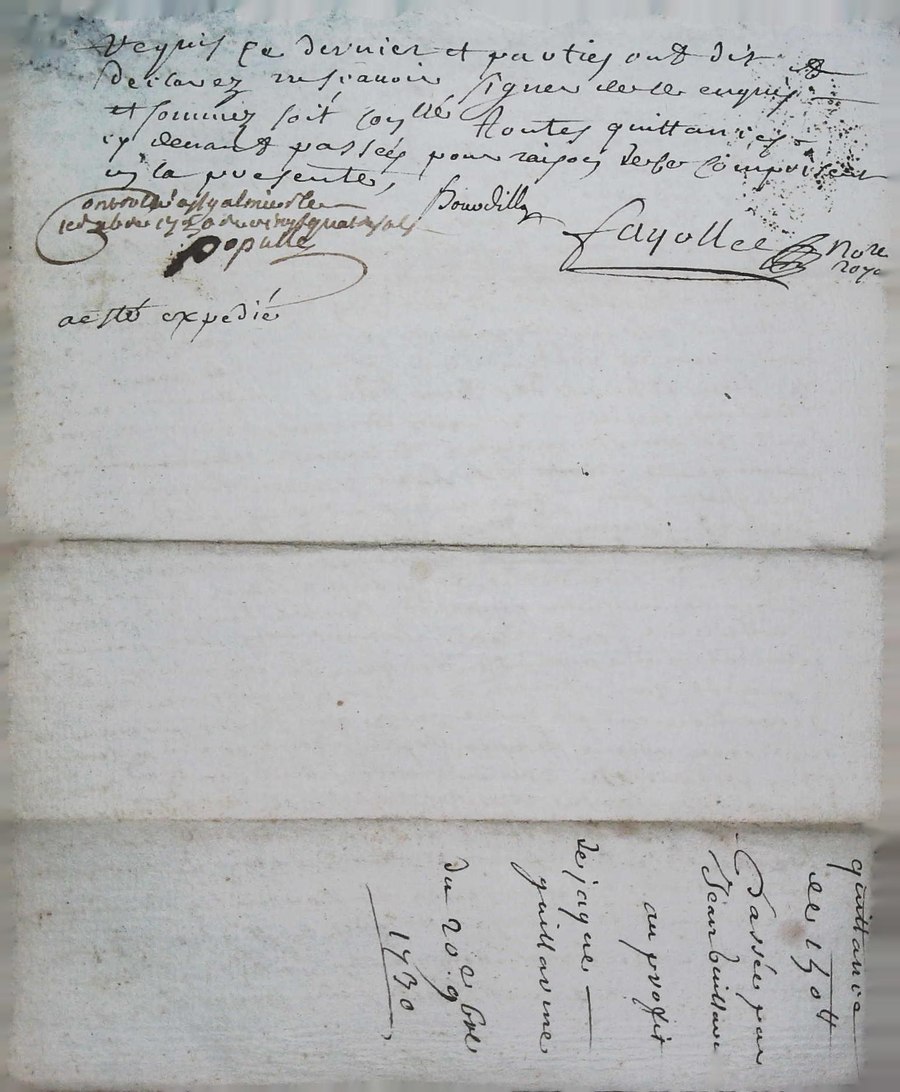 Requis ce dernier et parties ont dit et
declarez ne scavoir signer de ce enquis
et sommez soit conllé toutes quittances
cy devant passées pour raison de ce comprises
en la presente,
Bourdillon
Fayolle Nore
roya
Popule
a esté expedié
quittance
de 150ll
Passée par
Jean Guillaume
au proffit
de jaque
guillaume
du 20e 9bre
1730